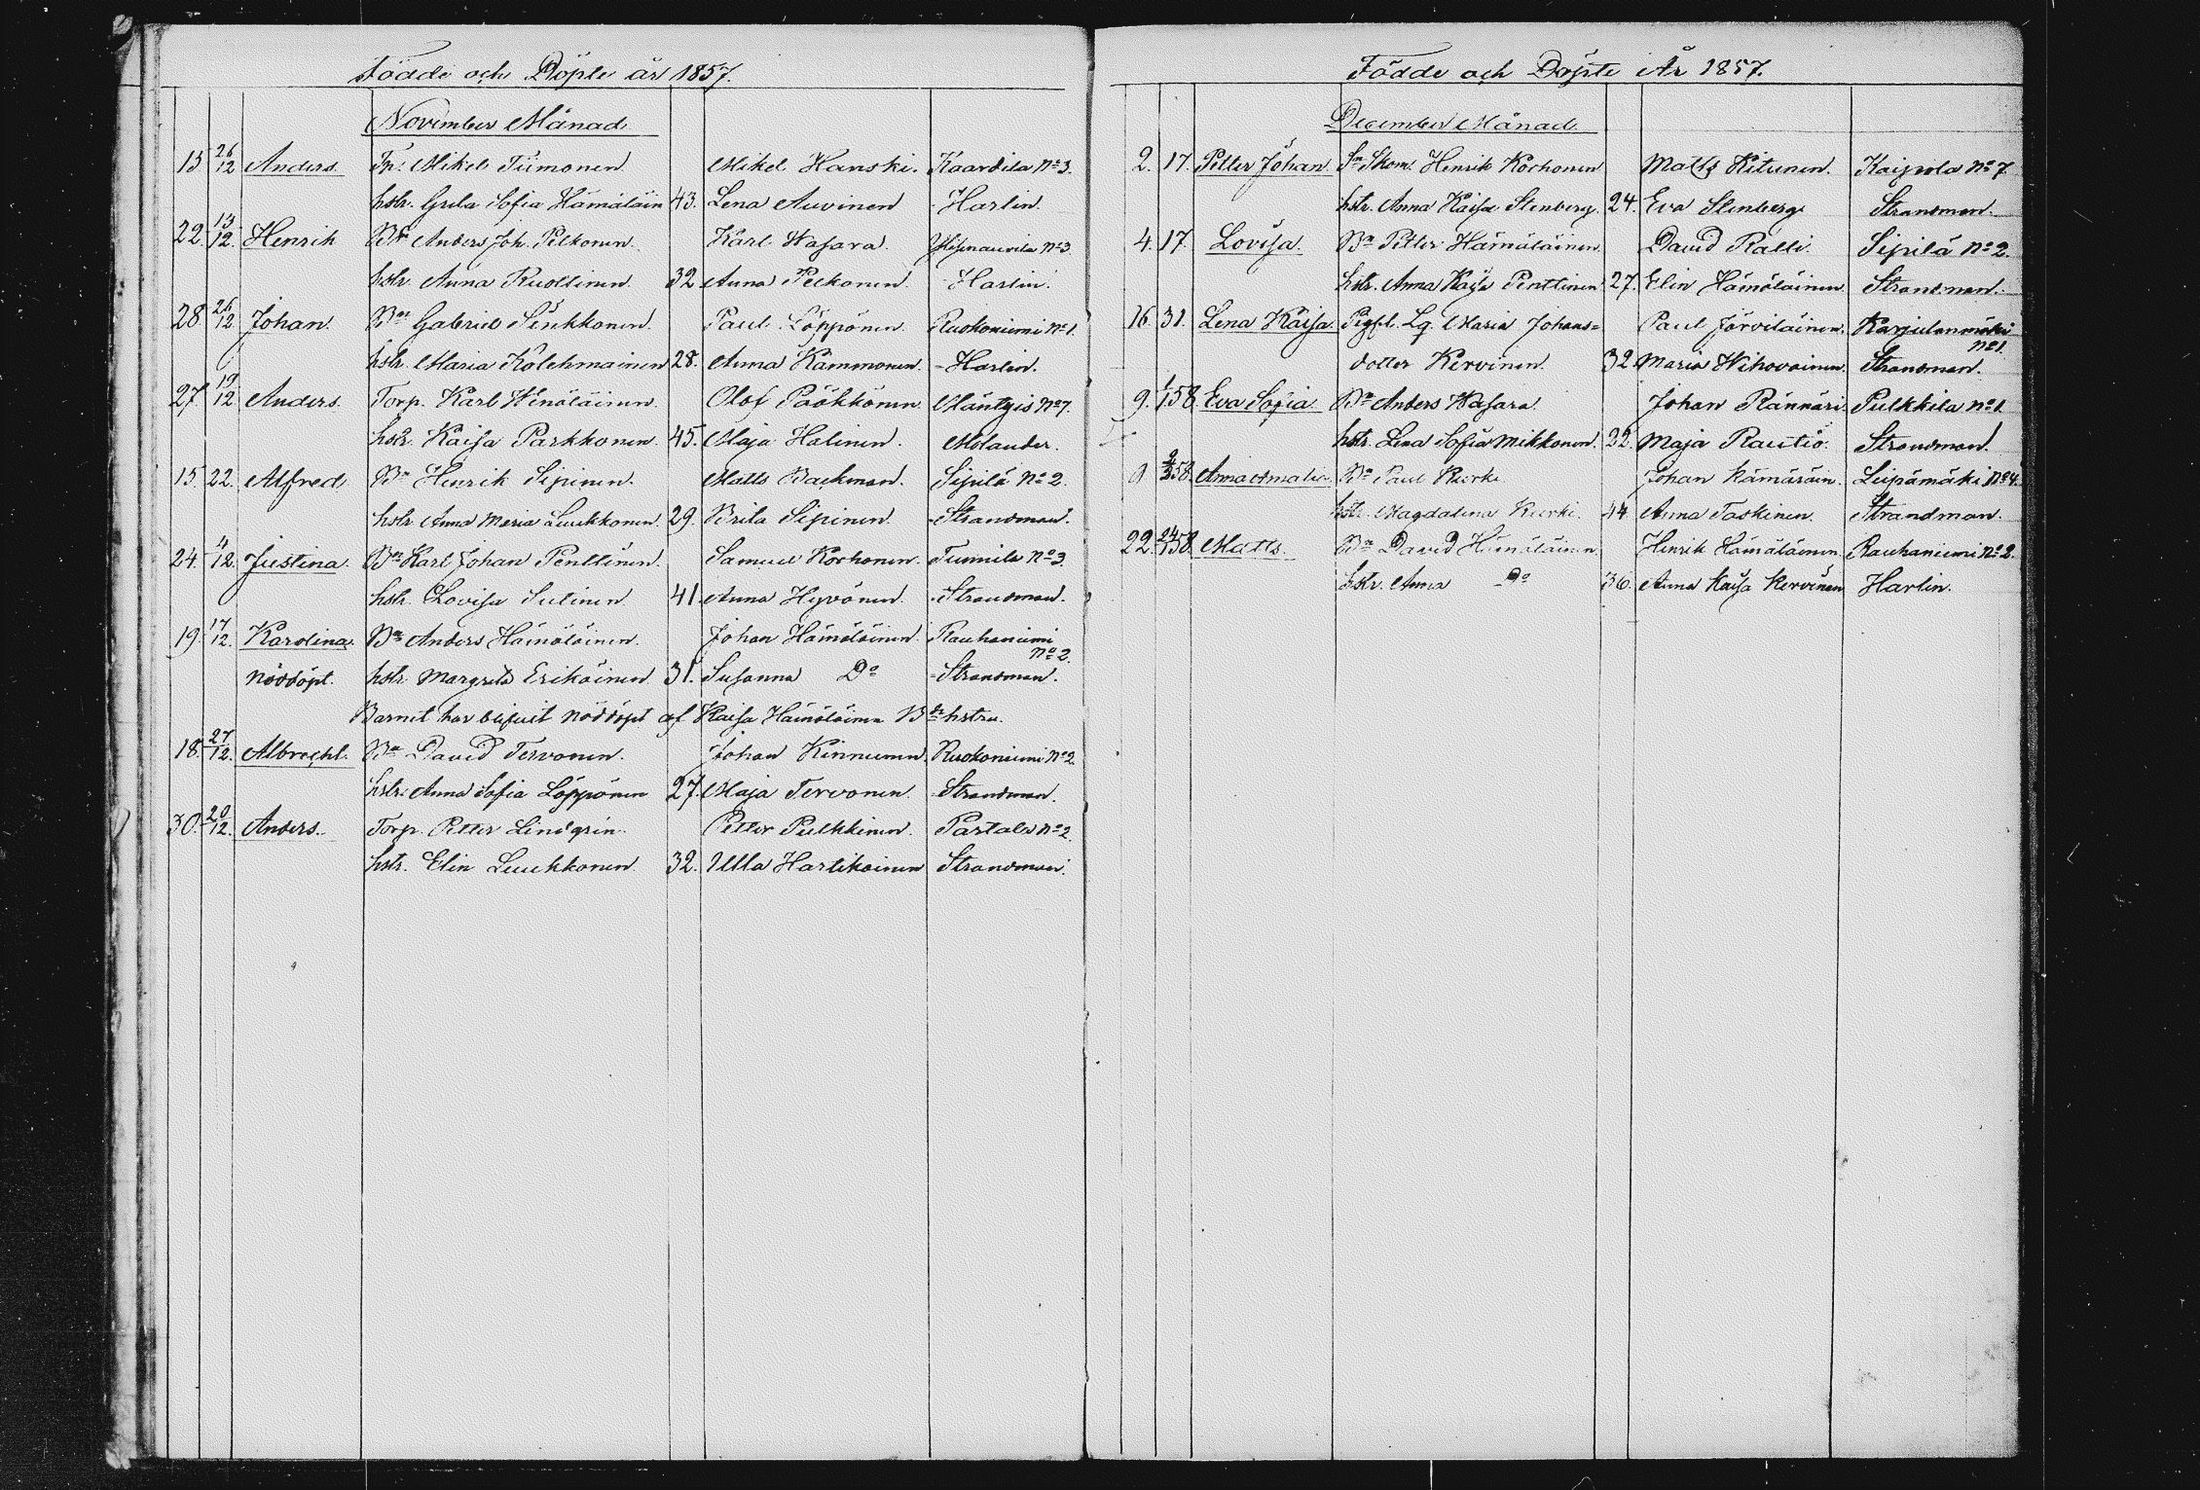 Födde och Döpte år 1857.
November Månad
13 26/12 Anders. Tp. Mikel Tiimonen Mikel Hanski. Kaavila No 3.
hstr. Greta Sofia Hämäläin 43. Lena Auvinen Harlin.
22. 13/12. Henrik Bn Anders Joh. Pelkonen. Karl Wasara. No 3
hstr. Anna Ruottinen. 32 Anna Pelkonen Harlin.
28 26/12 Johan. Bn Gabriel Sinkkonen. Paul Löppönen Ruokoniemi No 1.
hstr. Maria Kolehmainen 28. Anna Kämmonen. Harlin.
27. 19/12 Anders. Torp. Karl Wenäläinen. Olof Pöökkönen Mäntyis No 7.
hstr. Kaisa Parkkonen 45. Maja Halinen. Molander.
15. 22. Alfred, Bn Henrik Sipinen. Matts Backman. Sipilä No 2.
hstr Anna Maria Luukkonen. 29. Brita Sipinen Strandman.
24. 4/12. Justina. Bn Karl Johan Penttinen. Samuel Korhonen. Tunnila No 3.
hstr. Lovisa Sutinen 41. Anna Hyvönen. Strandman.
19. 17/12. Karolina. Bn Anders Hämäläinen. Johan Hämäläinen Rauhaniemi
No 2.
nöddöpt. hstr. Margreta Erikäinen. 31. Susanna Do Strandman.
Barnet har blifvit nöddöpt af Kaisa Hämäläinen Bde hstru.
18. 27/12. Albrecht. Bn David Tervonen. Johan Kinnunen. Ruokoniemi No 2.
hstr. Anna Sofia Löppönen 27. Maja Tervonen Strandman.
30. 20/12. Anders. Torp. Petter Lindgrén. Petter Pulkkinen. Partala No 2.
hstr. Elin Luukkonen. 32. Ulla Hartikainen Strandman.
Födde och Döpte År 1857.
December Månad.
2. 17. Petter Johan. Sn Skom. Henrik Korhonen Matts Kitunen. Kaipola No 7
hstr. Anna Kaisa Stenberg. 24. Eva Stenberg Strandman.
4. 17. Lovisa. Bn Petter Hämäläinen. David Ralli. Sipilä No 2.
hstr. Anna Kaisa Penttinen 27. Elin Hämäläinen. Strandman.
16. 31. Lena Kaisa Pigf. Lg. Maria Johans= Paul Järviläinen. Karjulanmäki
No 1.
dotter Kervinen. 32. Maria Wihovainen. Strandman.
9. 1/1 58. Eva Sofia. Bn Anders Wasara. Johan Rännäri. Pulkkila No 1.
hstr. Lena Sofia Mikkonen. 22. Maja Rautio. Strandman.
9 58. Anna Amalia. Bn Paul Kurki. Johan Kämäräin. Leipämäki No 4.
hstr. Magdalena Kurki. 44 Anna Taskinen. Strandman.
22. 24/1 58. Matts. Bn David Hämäläinen Henrik Hämäläinen. Rauhaniemi No 2.
hstr. Anna Do 36. Anna Kaisa Kervinen Harlin.